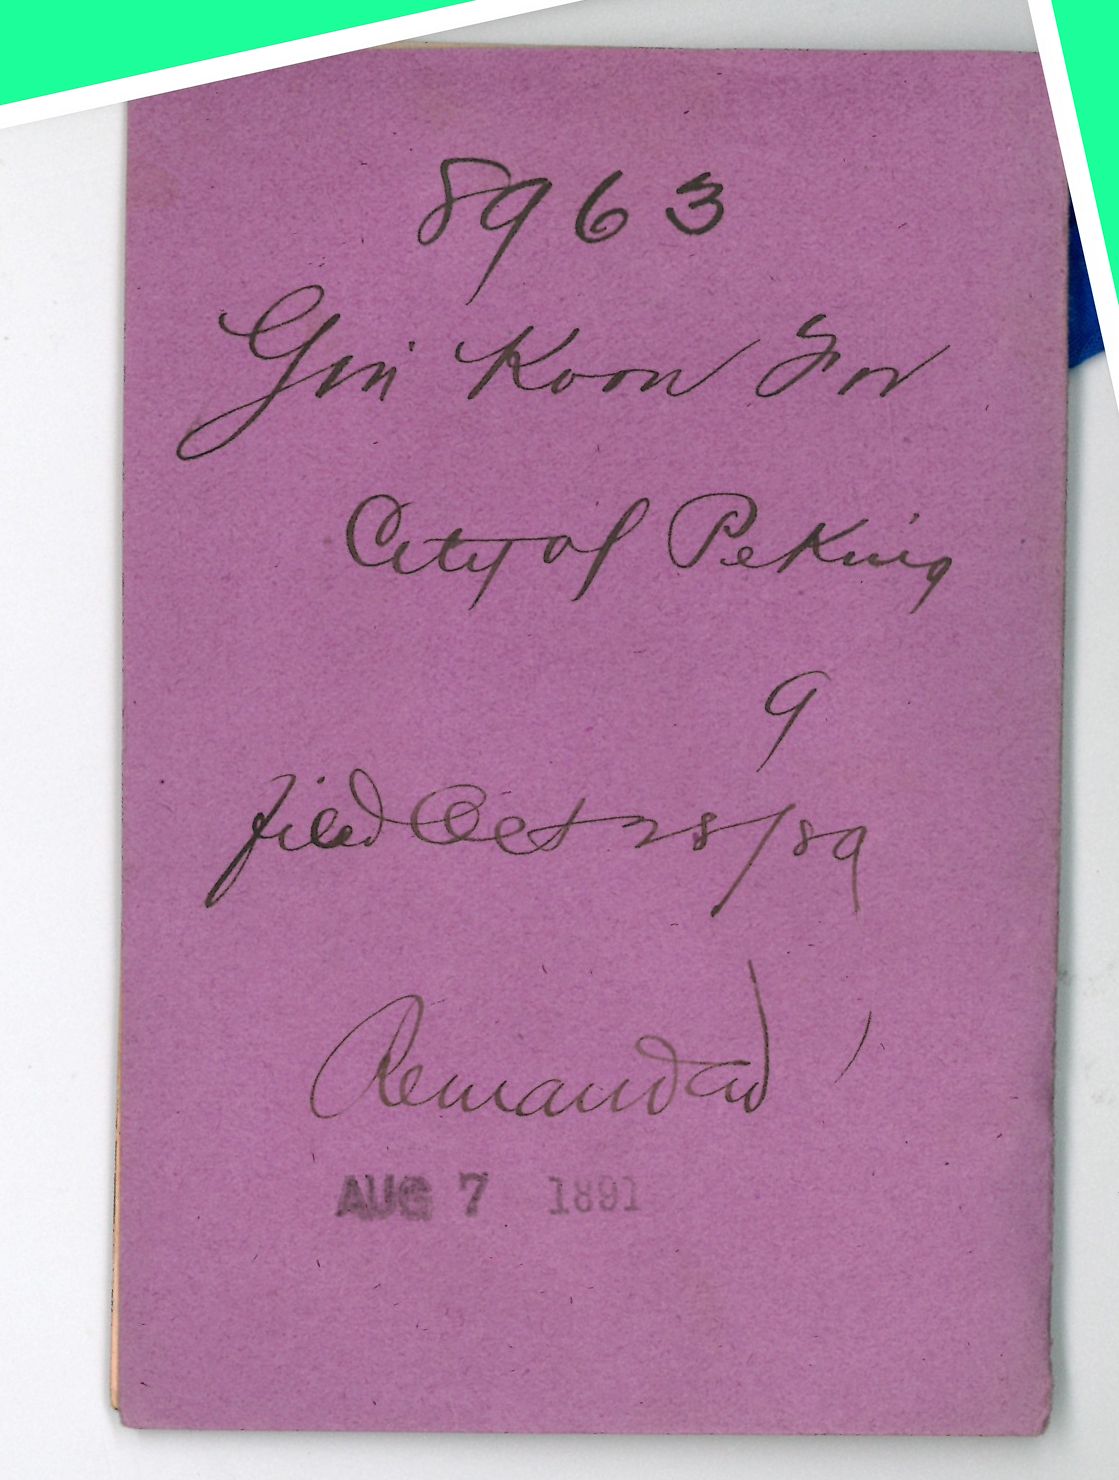 8963
Gin Koon For
City of Peking
9
filed Oct 28/89
Remanded
AUG 7 1891